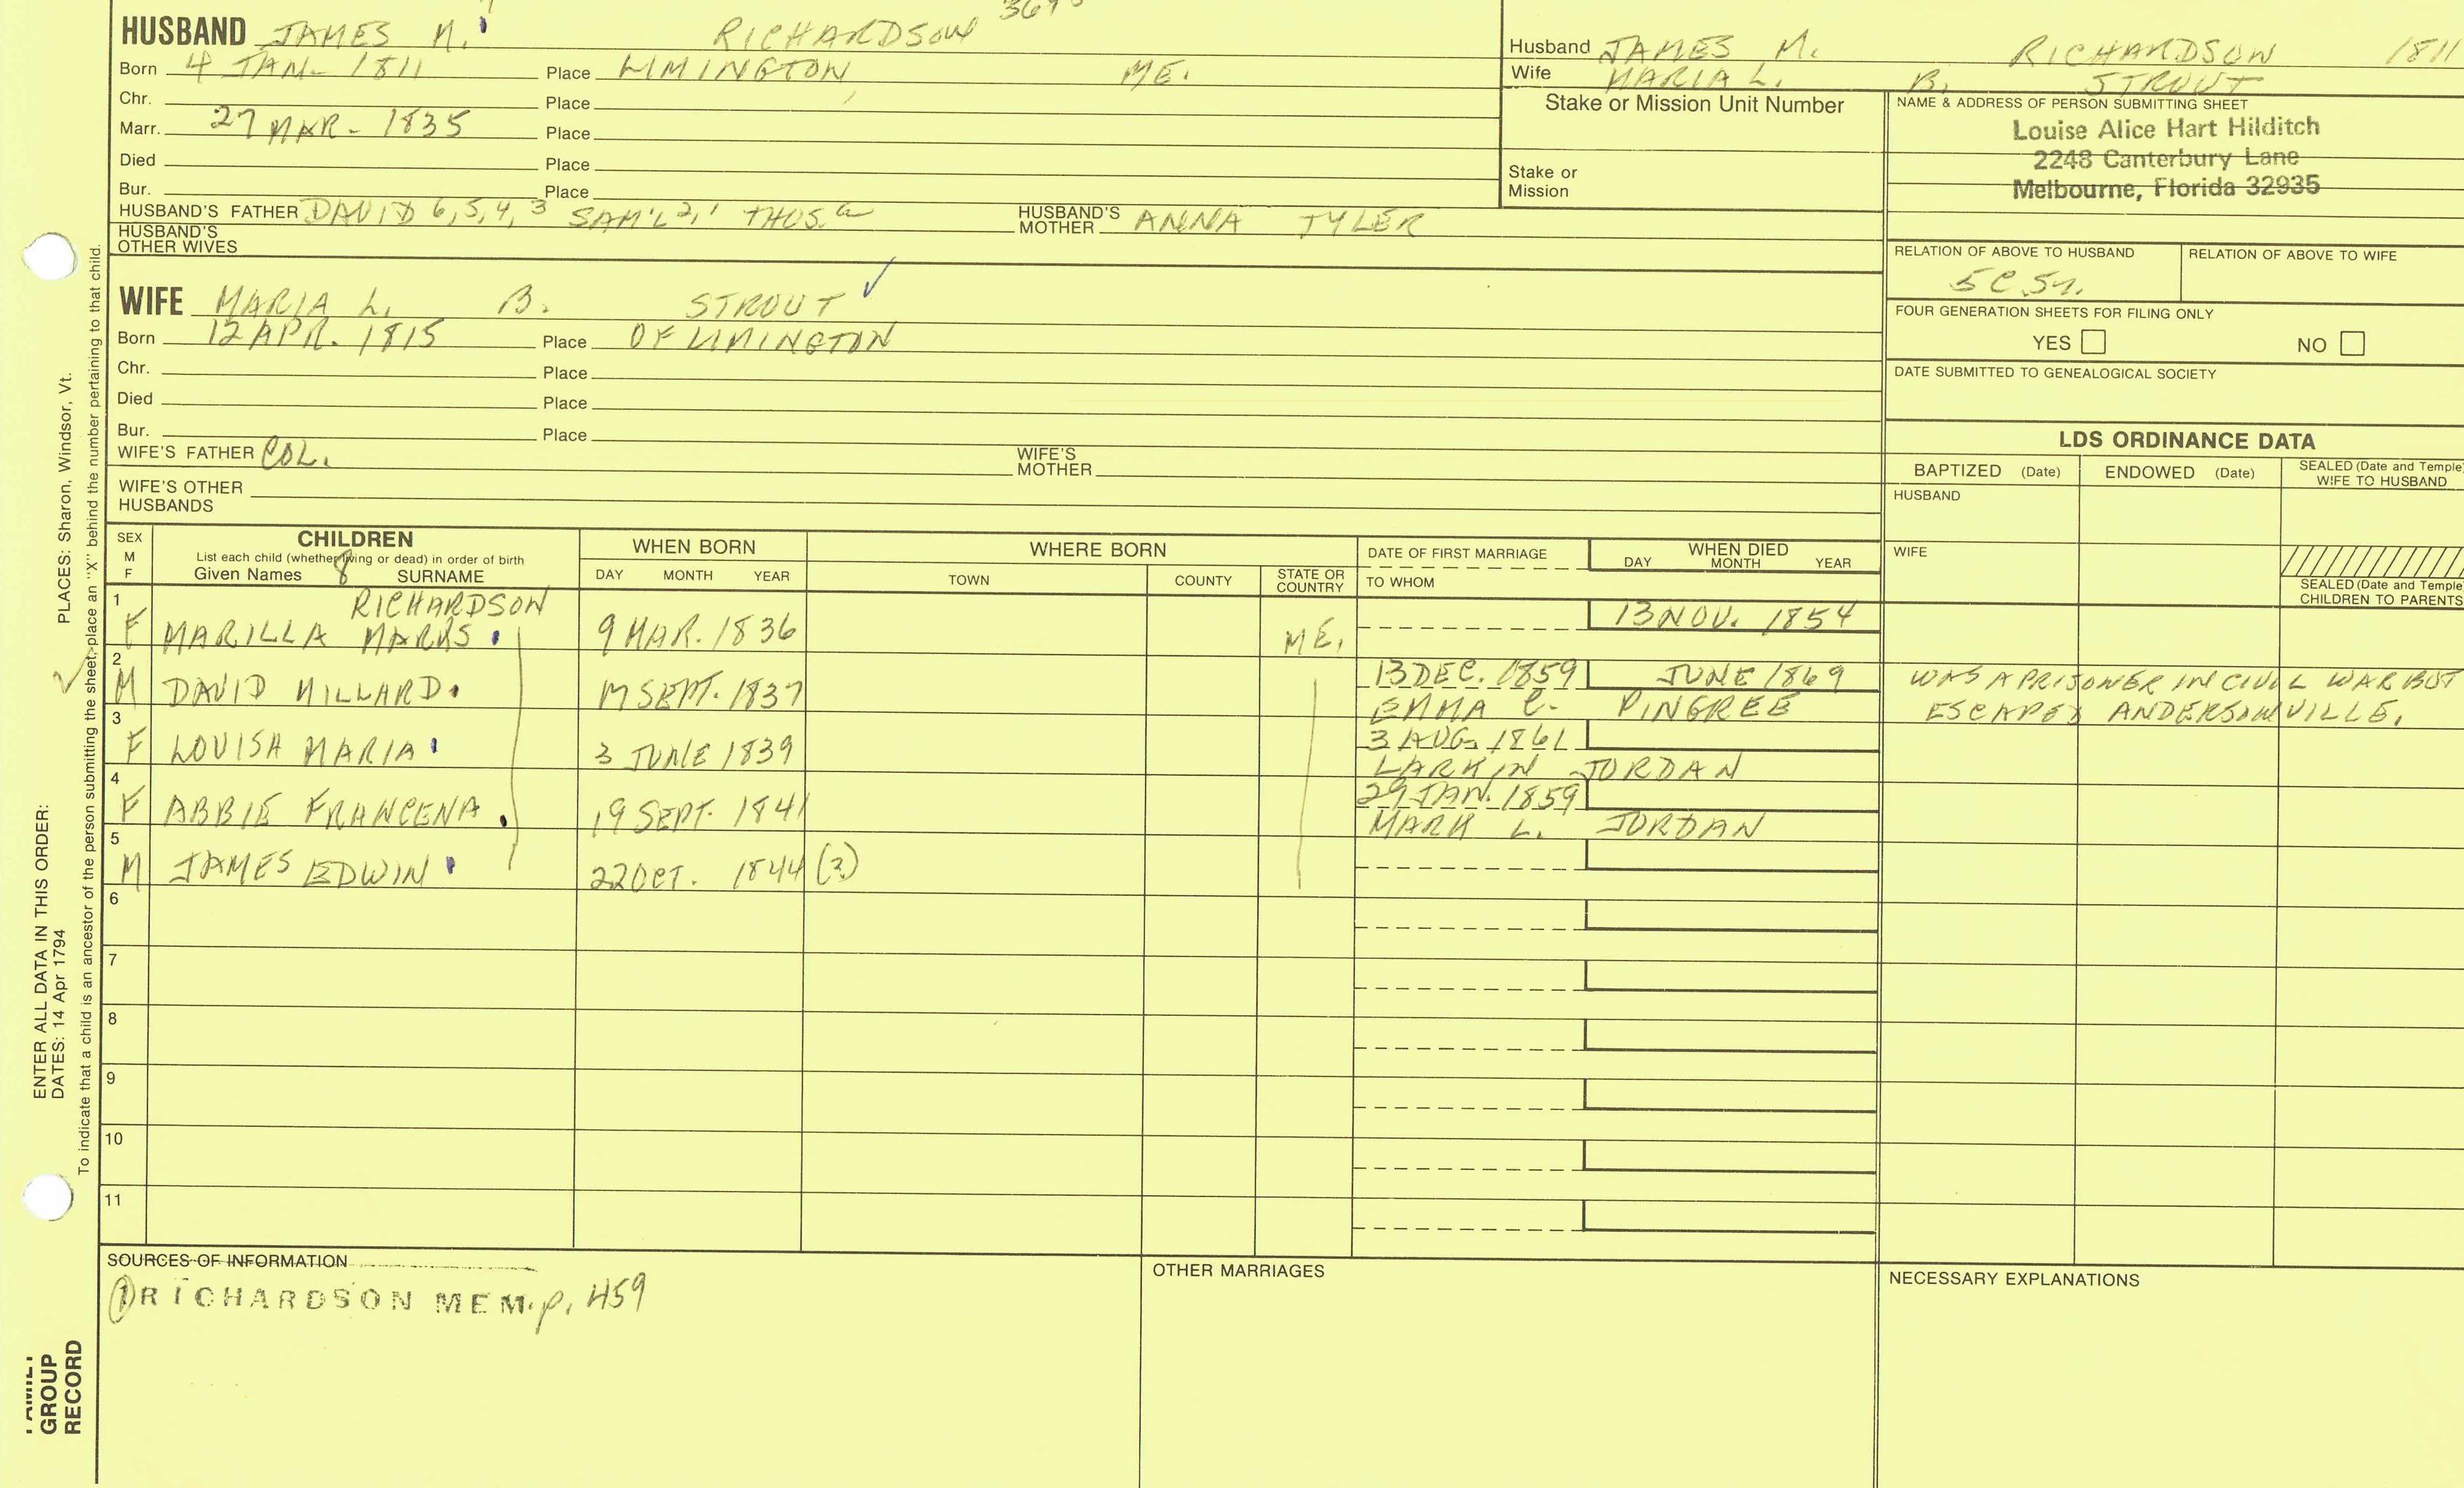 HUSBAND JAMES M. RICHARDSON
Born 4 JAN- 1811 Place LIMINGTON, ME.
Chr. Place
Marr. 27 MAR- 1835 Place
Died Place
Bur. Place
HUSBAND'S FATHER DAVID 6,5,4,3 SAM'L 2,1 THOS. HUSBAND'S MOTHER ANNA TYLER
HUSBAND'S OTHER WIVES
WIFE MARIA L. B. STROUT
Born 12 APR. 1815 Place OF LIMINGTON
Chr. Place
Died Place
Bur. Place
WIFE'S FATHER COL. WIFE'S MOTHER
WIFE'S OTHER HUSBANDS
Husband JAMES M. RICHARDSON 1811
Wife MARIA L. B. STROUT
Stake or Mission Unit Number
Stake or Mission
NAME & ADDRESS OF PERSON SUBMITTING SHEET
Louise Alice Hart Hilditch
2248 Canterbury Lane
Melbourne, Florida 32935
RELATION OF ABOVE TO HUSBAND RELATION OF ABOVE TO WIFE
FOUR GENERATION SHEETS FOR FILING ONLY
YES NO
DATE SUBMITTED TO GENEALOGICAL SOCIETY
LDS ORDINANCE DATA
BAPTIZED (Date) ENDOWED (Date) SEALED (Date and Temple) WIFE TO HUSBAND
HUSBAND
WIFE
SEALED (Date and Temple) CHILDREN TO PARENTS
SEX M F
CHILDREN
List each child (whether living or dead) in order of birth
Given Names 8 SURNAME
WHEN BORN
DAY MONTH YEAR
WHERE BORN
TOWN COUNTY STATE OR COUNTRY
DATE OF FIRST MARRIAGE
TO WHOM
WHEN DIED
DAY MONTH YEAR
1 RICHARDSON
F MARILLA MARKS 9 MAR. 1836 ME. 13 NOV. 1854
2 M DAVID MILLARD 17 SEPT. 1837 13 DEC. 1859 JUNE 1869 WAS A PRISONER IN CIVIL WAR BUT
EMMA C. PINGREE ESCAPED ANDERSONVILLE.
3 F LOUISA MARIA 3 JUNE 1839 3 AUG. 1861
LARKIN JORDAN
4 F ABBIE FRANCENA 19 SEPT. 1841 29 JAN. 1859
MARK L. JORDAN
5 M JAMES EDWIN 22 OCT. 1844 (3)
6
7
8
9
10
11
SOURCES OF INFORMATION
1 RICHARDSON MEM. p. 459
OTHER MARRIAGES
NECESSARY EXPLANATIONS
ENTER ALL DATA IN THIS ORDER:
DATES: 14 Apr 1794 PLACES: Sharon, Windsor, Vt.
To indicate that a child is an ancestor of the person submitting the sheet, place an "X" behind the number pertaining to that child.
FAMILY
GROUP
RECORD